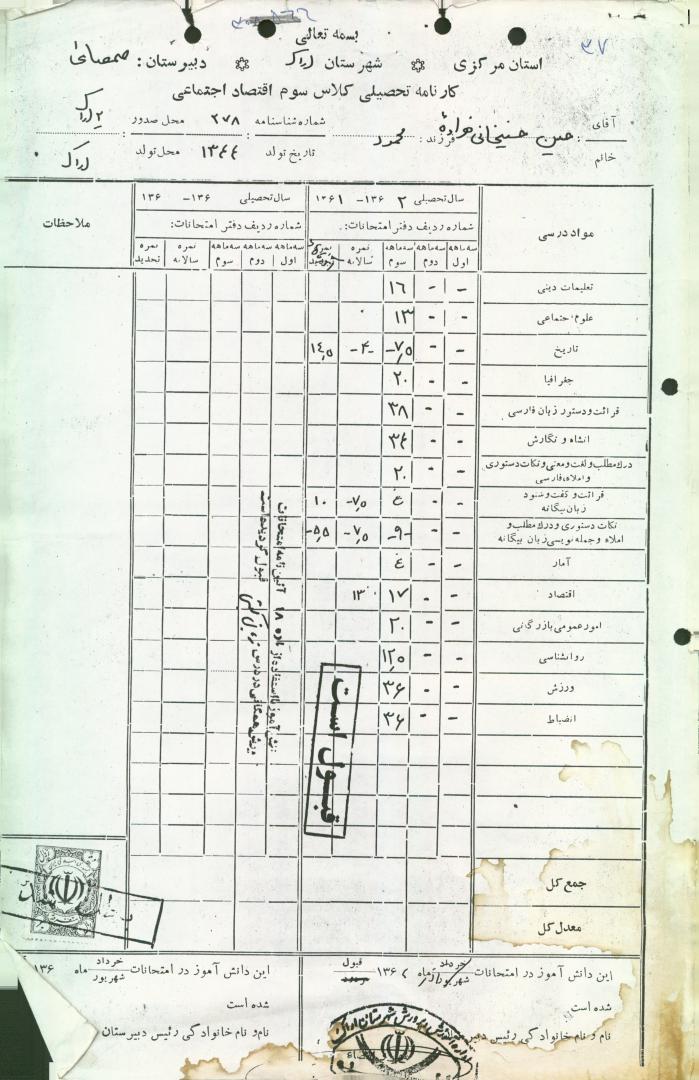 ۳۷
بسمه تعالی
استان مرکزی شهرستان اراک دبیرستان: صمصامی
کارنامه تحصیلی کلاس سوم اقتصاد اجتماعی
آقای
خانم
: حسین فرزند: محمود شماره شناسنامه : ۲۷۸ محل صدور : ۲ اراک
تاریخ تولد ۱۳۴۴ محل تولد : اراک
مواد درسی
سال تحصیلی ۲ ۱۳۶- ۱ ۱۳۶
سال تحصیلی ۱۳۶- ۱۳۶
ملاحظات
شماره ردیف دفتر امتحانات:
شماره ردیف دفتر امتحانات:
سه ماهه اول سه ماهه دوم سه ماهه سوم نمره سالانه نمره تجدید
سه ماهه اول سه ماهه دوم سه ماهه سوم نمره سالانه نمره تجدید
تعلیمات دینی - - ۱۶
علوم اجتماعی - - ۱۳
تاریخ - - ۷٫۵ -۴- ۱۴٫۵
جغرافیا - - ۲۰
قرائت و دستور زبان فارسی - - ۳۸
انشاء و نگارش - - ۳۴
درک مطلب و لغت و معنی و نکات دستوری و املاء فارسی - - ۲۰
قرائت و گفت و شنود زبان بیگانه - - ۴ -۷٫۵ ۱۰
نکات دستوری و درک مطلب و املاء و جمله نویسی زبان بیگانه - - -۹- -۷٫۵ -۵٫۵
آمار - - ۴
اقتصاد - - ۱۷ ۱۳
امور عمومی بازرگانی - - ۲۰
روانشناسی - - ۱۲٫۵
ورزش - - ۳۶
انضباط - - ۳۶
دانش آموز با استفاده از ماده ۱۸ آئین نامه امتحانات
قبول گردیده است
قبول است
جمع کل
معدل کل
این دانش آموز در امتحانات خرداد شهریور ماه ۱۳۶۲ قبول
شده است
نام و نام خانوادگی رئیس
این دانش آموز در امتحانات خرداد شهریور ماه ۱۳۶
شده است
نام و نام خانوادگی رئیس دبیرستان